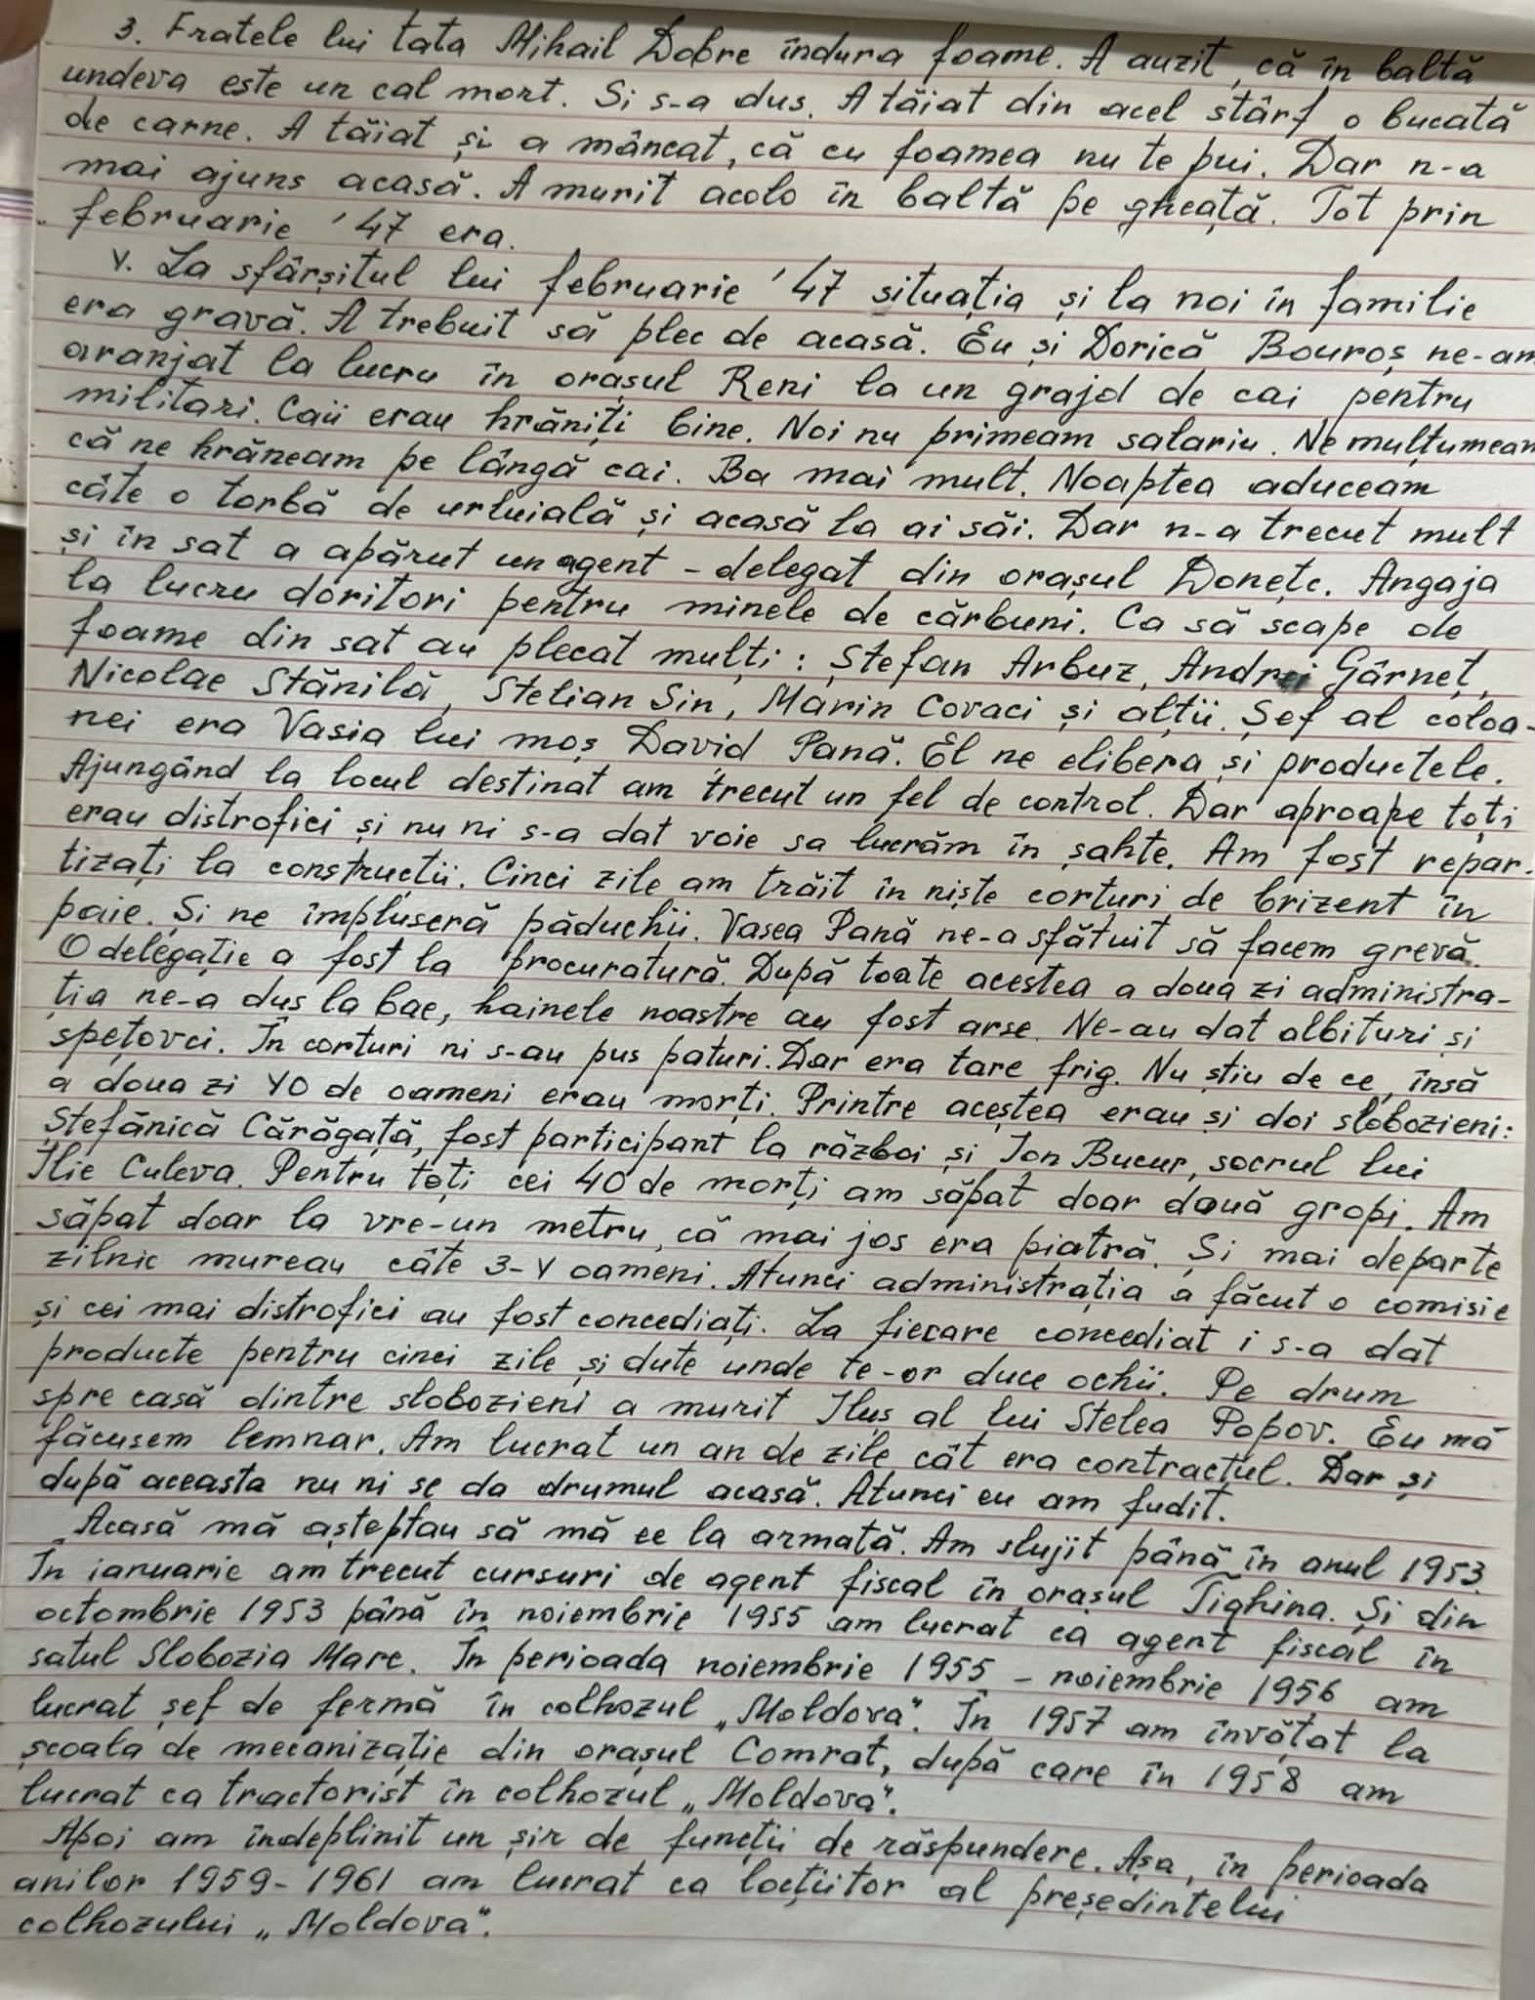 3. Fratele lui tata Mihail Dobre îndura foame. A auzit, că în baltă
undeva este un cal mort. Si s-a dus. A tăiat din acel stârf o bucată
de carne. A tăiat și a mâncat, că cu foamea nu te pui. Dar n-a
mai ajuns acasă. A murit acolo în baltă pe gheață. Tot prin
februarie '47 era.
4. La sfârșitul lui februarie '47 situația și la noi în familie
era gravă. A trebuit să plec de acasă. Eu și Dorică Bouroș ne-am
aranjat la lucru în orașul Reni la un grajd de cai pentru
militari. Caii erau hrăniți bine. Noi nu primeam salariu. Ne mulțumeam
că ne hrăneam pe lângă cai. Ba mai mult. Noaptea aduceam
câte o torbă de urluială și acasă la ai săi. Dar n-a trecut mult
și în sat a apărut un agent - delegat din orașul Donețc. Angaja
la lucru doritori pentru minele de cărbuni. Ca să scape de
foame din sat au plecat mulți: Ștefan Arbuz, Andrei Gârneț,
Nicolae Stănilă, Stelian Sin, Marin Covaci și alții. Șef al coloa-
nei era Vasia lui moș David Pană. El ne elibera și productele.
Ajungând la locul destinat am trecut un fel de control. Dar aproape toți
erau distrofici și nu ni s-a dat voie sa lucrăm în șahte. Am fost repar-
tizați la construcții. Cinci zile am trăit în niște corturi de brizent în
paie. Și ne împluseră păduchii. Vasea Pană ne-a sfătuit să facem grevă.
O delegație a fost la procuratură. După toate acestea a doua zi administra-
ția ne-a dus la bae, hainele noastre au fost arse. Ne-au dat albituri și
spețovci. În corturi ni s-au pus paturi. Dar era tare frig. Nu știu de ce, însă
a doua zi 40 de oameni erau morți. Printre aceștea erau și doi slobozieni:
Ștefănică Cărăgață, fost participant la război și Ion Bucur, socrul lui
Ilie Culeva. Pentru toți cei 40 de morți am săpat doar două gropi. Am
săpat doar la vre-un metru, că mai jos era piatră. Și mai departe
zilnic mureau câte 3-4 oameni. Atunci administrația a făcut o comisie
și cei mai distrofici au fost concediați. La fiecare concediat i s-a dat
producte pentru cinci zile și dute unde te-or duce ochii. Pe drum
spre casă dintre slobozieni a murit Iluș al lui Stelea Popov. Eu mă
făcusem lemnar. Am lucrat un an de zile cât era contractul. Dar și
după aceasta nu ni se da drumul acasă. Atunci eu am fudit.
Acasă mă așteptau să mă ee la armată. Am slujit până în anul 1953.
În ianuarie am trecut cursuri de agent fiscal în orașul Tighina. Și din
octombrie 1953 până în noiembrie 1955 am lucrat ca agent fiscal în
satul Slobozia Mare. În perioada noiembrie 1955 - noiembrie 1956 am
lucrat șef de fermă în colhozul „Moldova". În 1957 am învățat la
școala de mecanizație din orașul Comrat, după care în 1958 am
lucrat ca tractorist în colhozul „Moldova".
Apoi am îndeplinit un șir de funcții de răspundere. Așa, în perioada
anilor 1959-1961 am lucrat ca locțiitor al președintelui
colhozului „Moldova".